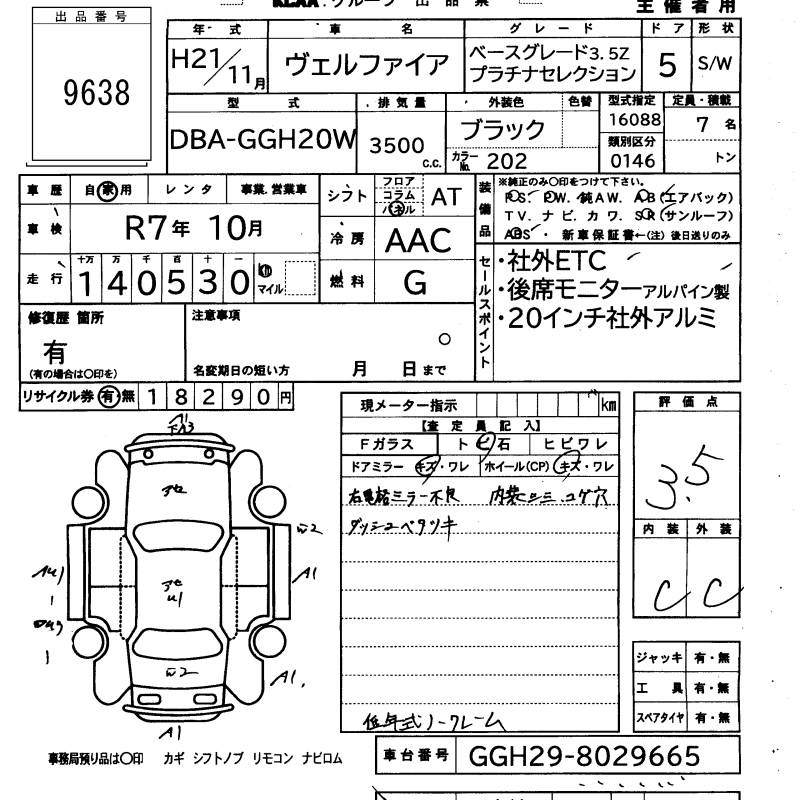 KCAA.グループ 出品票
主催者用
出品番号
9638
年式 車名 グレード ドア 形状
H21/11月 ヴェルファイア ベースグレード3.5Z プラチナセレクション 5 S/W
型式 排気量 外装色 色替 型式指定 定員・積載
DBA-GGH20W 3500 c.c. ブラック 16088 7名
類別区分
カラーNo. 202 0146 トン
車歴 自家用 レンタ 事業.営業車
シフト フロア コラム パネル AT
装備品
※純正のみ○印をつけて下さい。
P.S. P.W. 純AW. A/B(エアバック)
TV. ナビ. カワ. S/R(サンルーフ)
ABS ・ 新車保証書←(注)後日送りのみ
車検 R7年 10月
冷房 AAC
走行 十万 万 千 百 十 一
140530 km マイル
燃料 G
セールスポイント
・社外ETC
・後席モニターアルパイン製
・20インチ社外アルミ
修復歴 箇所
有
(有の場合は○印を)
注意事項
名変期日の短い方 月 日まで
リサイクル券 有 無 18290円
現メーター指示 km
【査定員記入】
Fガラス トビ石 ヒビワレ
ドアミラー キズ・ワレ ホイール(CP) キズ・ワレ
右電格ミラー不良 内装シミ.コゲ穴
ダッシュベタツキ
低年式ノークレーム
評価点
3.5
内装 外装
C C
A1
アセ
W2
A1
アセ
U1
W2
A1.
A1
ジャッキ 有・無
工具 有・無
スペアタイヤ 有・無
事務局預り品は○印 カギ シフトノブ リモコン ナビロム
車台番号 GGH29-8029665